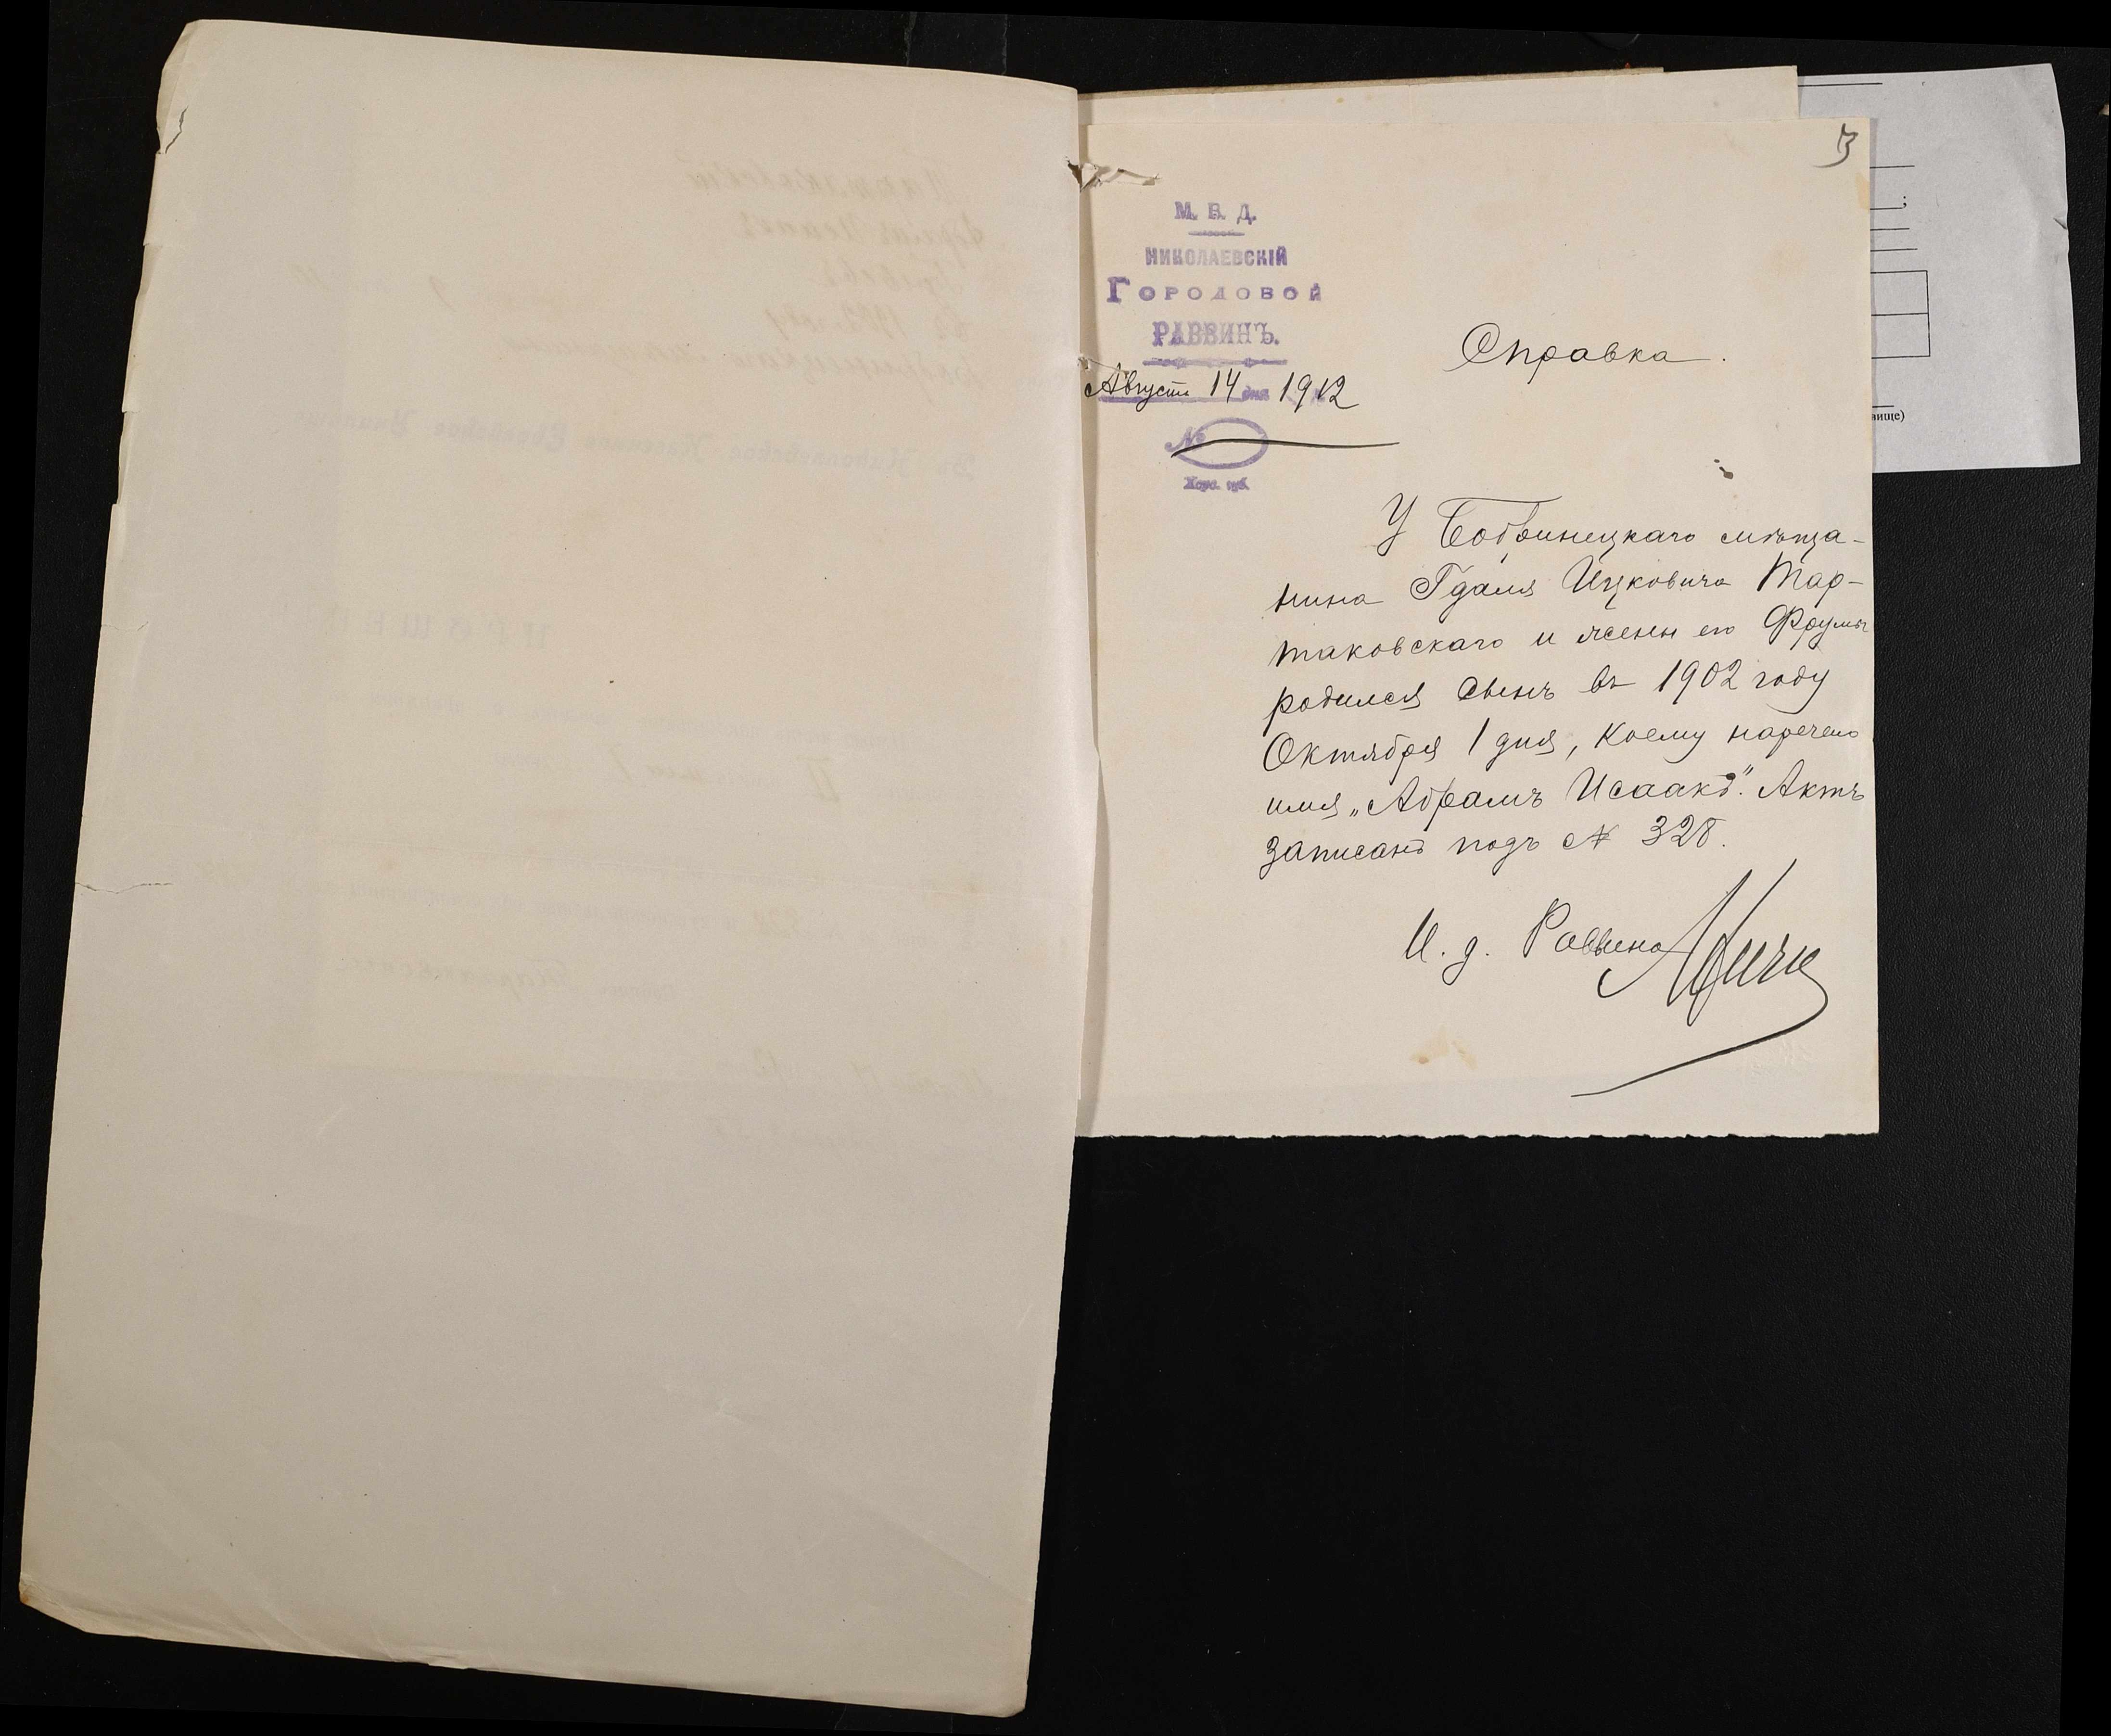 3
М. В. Д.
НИКОЛАЕВСКІЙ
ГОРОДОВОЙ
РАВВИНЪ.
Августа 14 дня 1912
№
Херс. губ.
Справка.
У Бобринецкаго мѣща-
нина Гдаля Ицковича Тар-
таковскаго и жены его Фрумы
родился сынъ въ 1902 году
Октября 1 дня, коему наречено
имя „Абрамъ Исаакъ". Актъ
записанъ подъ № 328.
И. д. Раввина
вище)